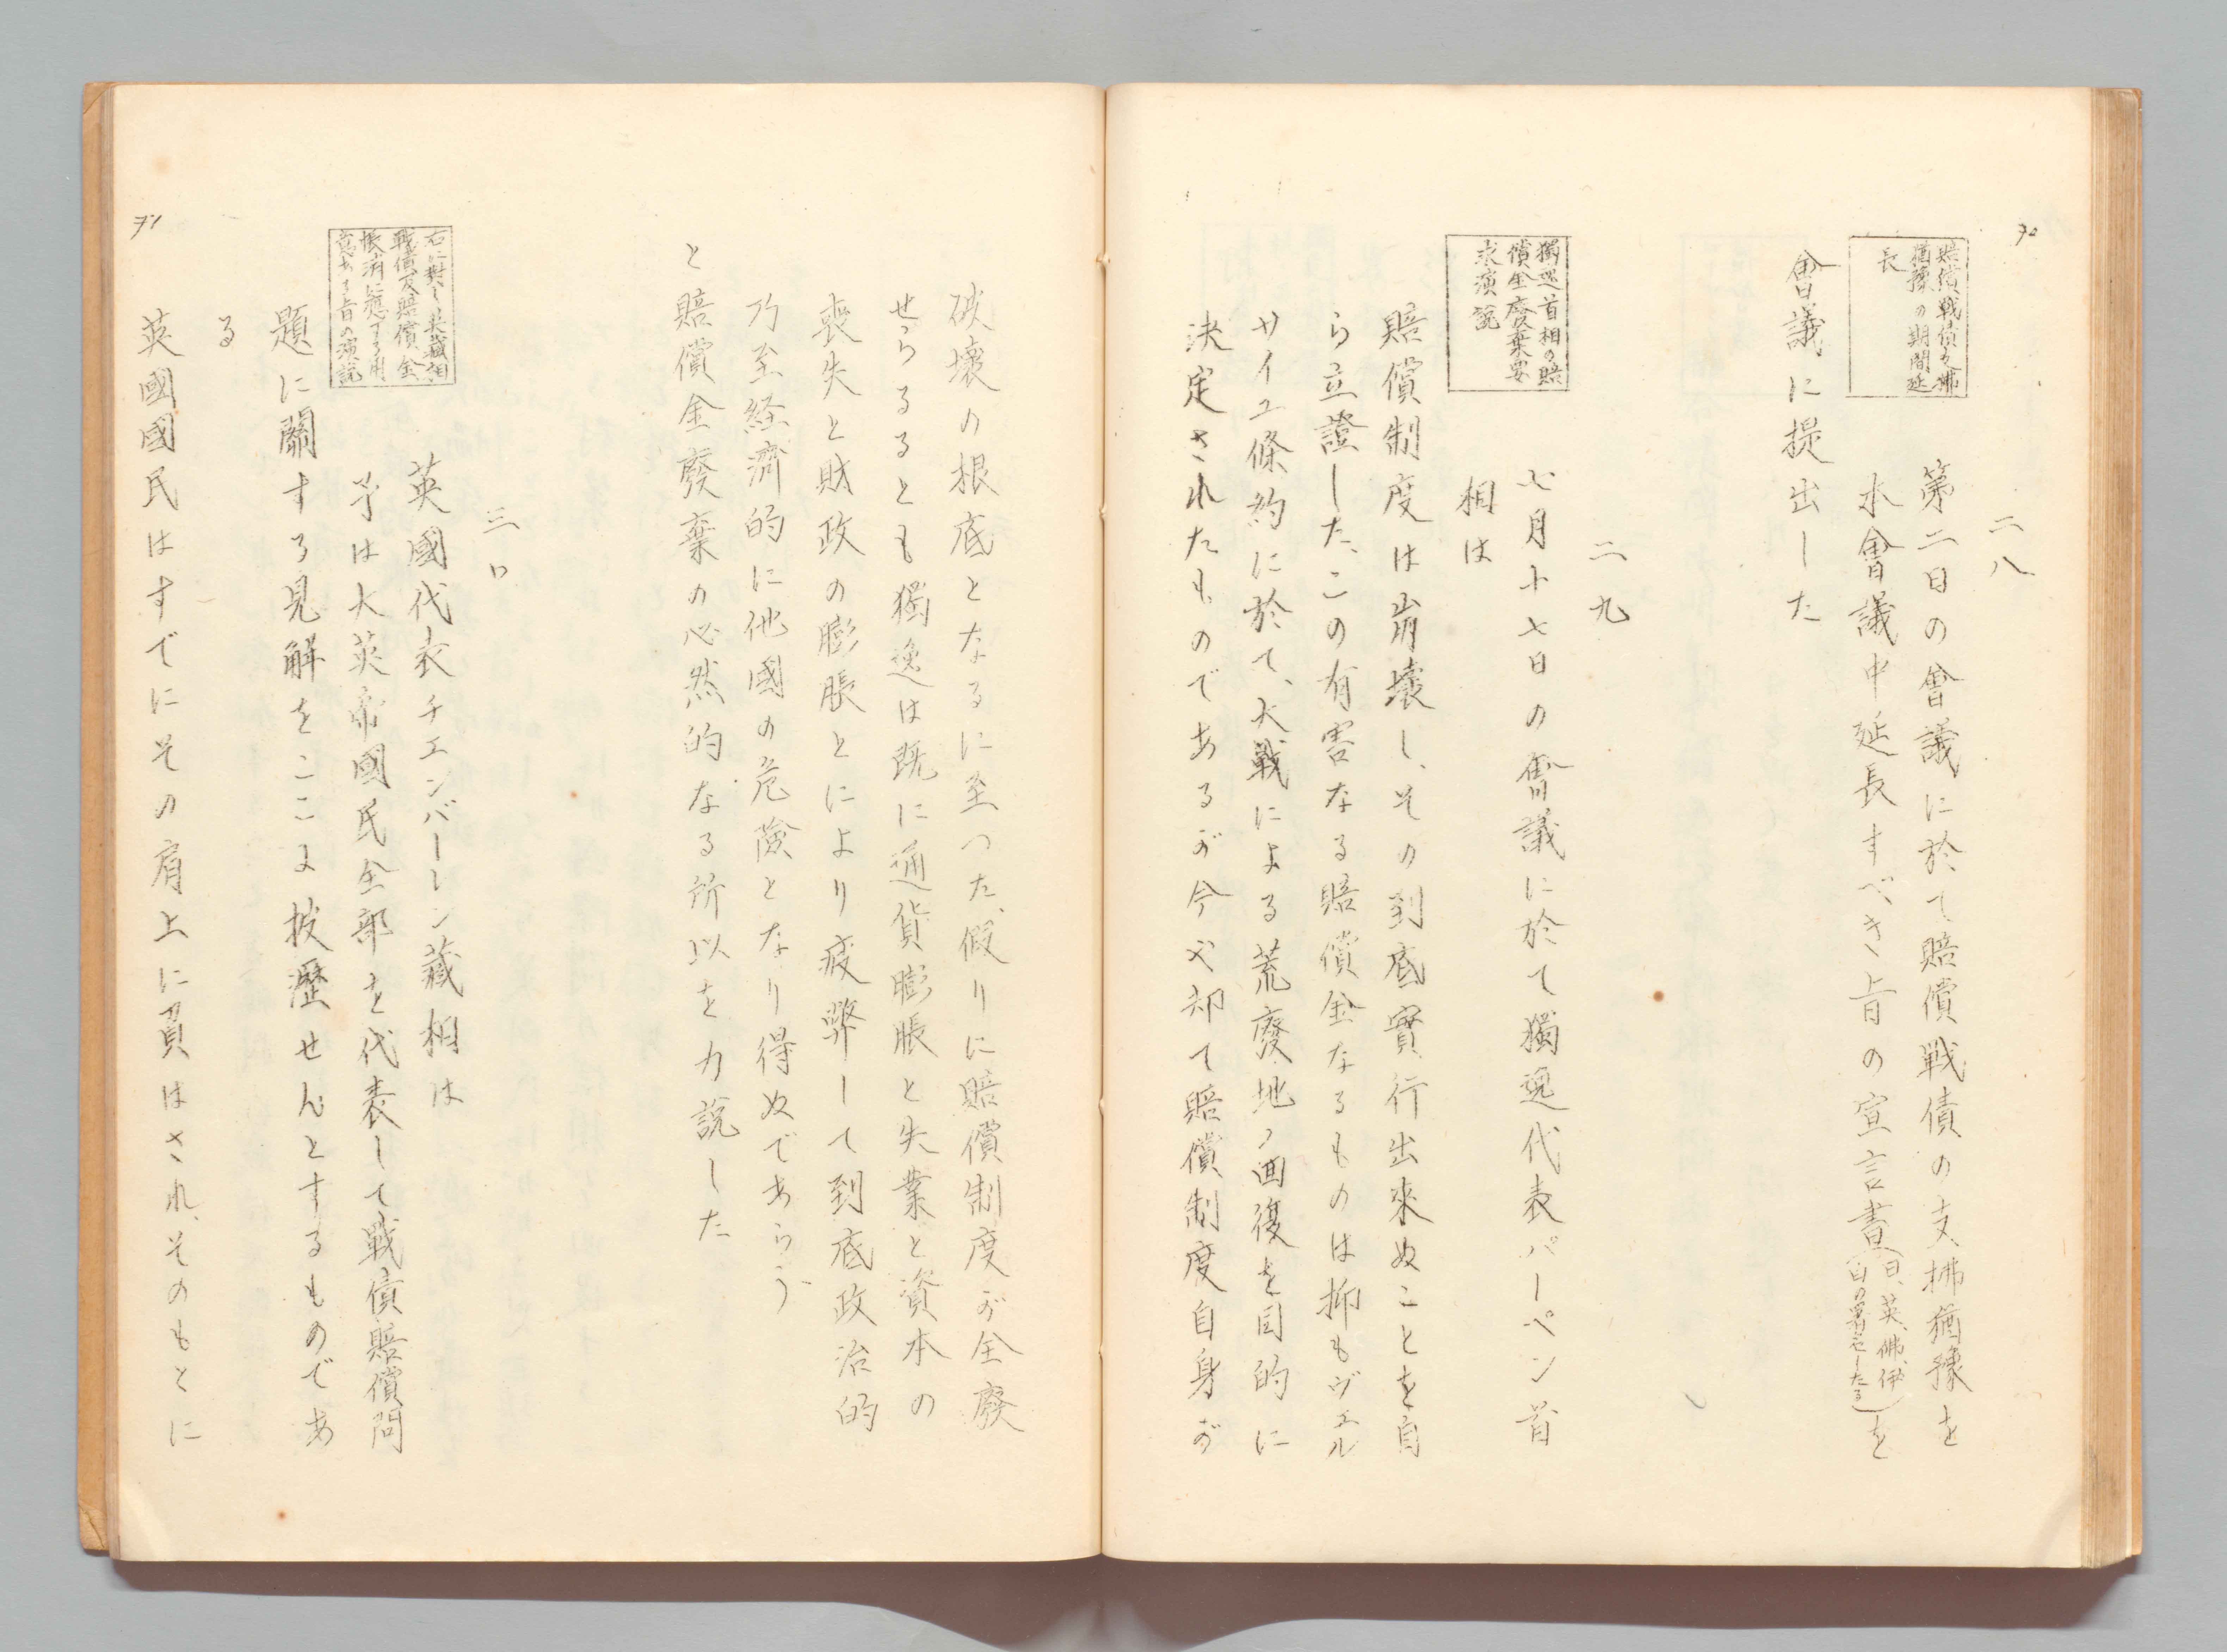 70
二八
賠償戰債支拂
猶豫の期間延
長
第二日の會議に於て賠償戰債の支拂猶豫を
本會議中延長すべき旨の宣言書(日、英、佛、伊
白の署名したる)を
會議に提出した
二九
獨逸首相の賠
償金廢棄要
求演說
七月十七日の會議に於て獨逸代表パーペン首
相は
賠償制度は崩壞し、その到底實行出來ぬことを自
ら立證した、この有害なる賠償金なるものは抑もヴェル
サイユ條約に於て、大戰による荒廢地ノ回復を目的に
決定されたものであるが今や却て賠償制度自身が
破壞の根底となるに至つた、假りに賠償制度が全廢
せらるるとも獨逸は既に通貨膨脹と失業と資本の
喪失と財政の膨脹とにより疲弊して到底政治的
乃至経濟的に他國の危險となり得ぬであらう
と賠償金廢棄の必然的なる所以を力說した
三〇
右に對し英藏相
戰債及賠償金
帳消に應ずる用
意ある旨の演說
英國代表チエンバーレン藏相は
予は大英帝國民全部を代表して戰債賠償問
題に關する見解をここに披瀝せんとするものであ
る
英國國民はすでにその肩上に負はされ、そのもとに
71